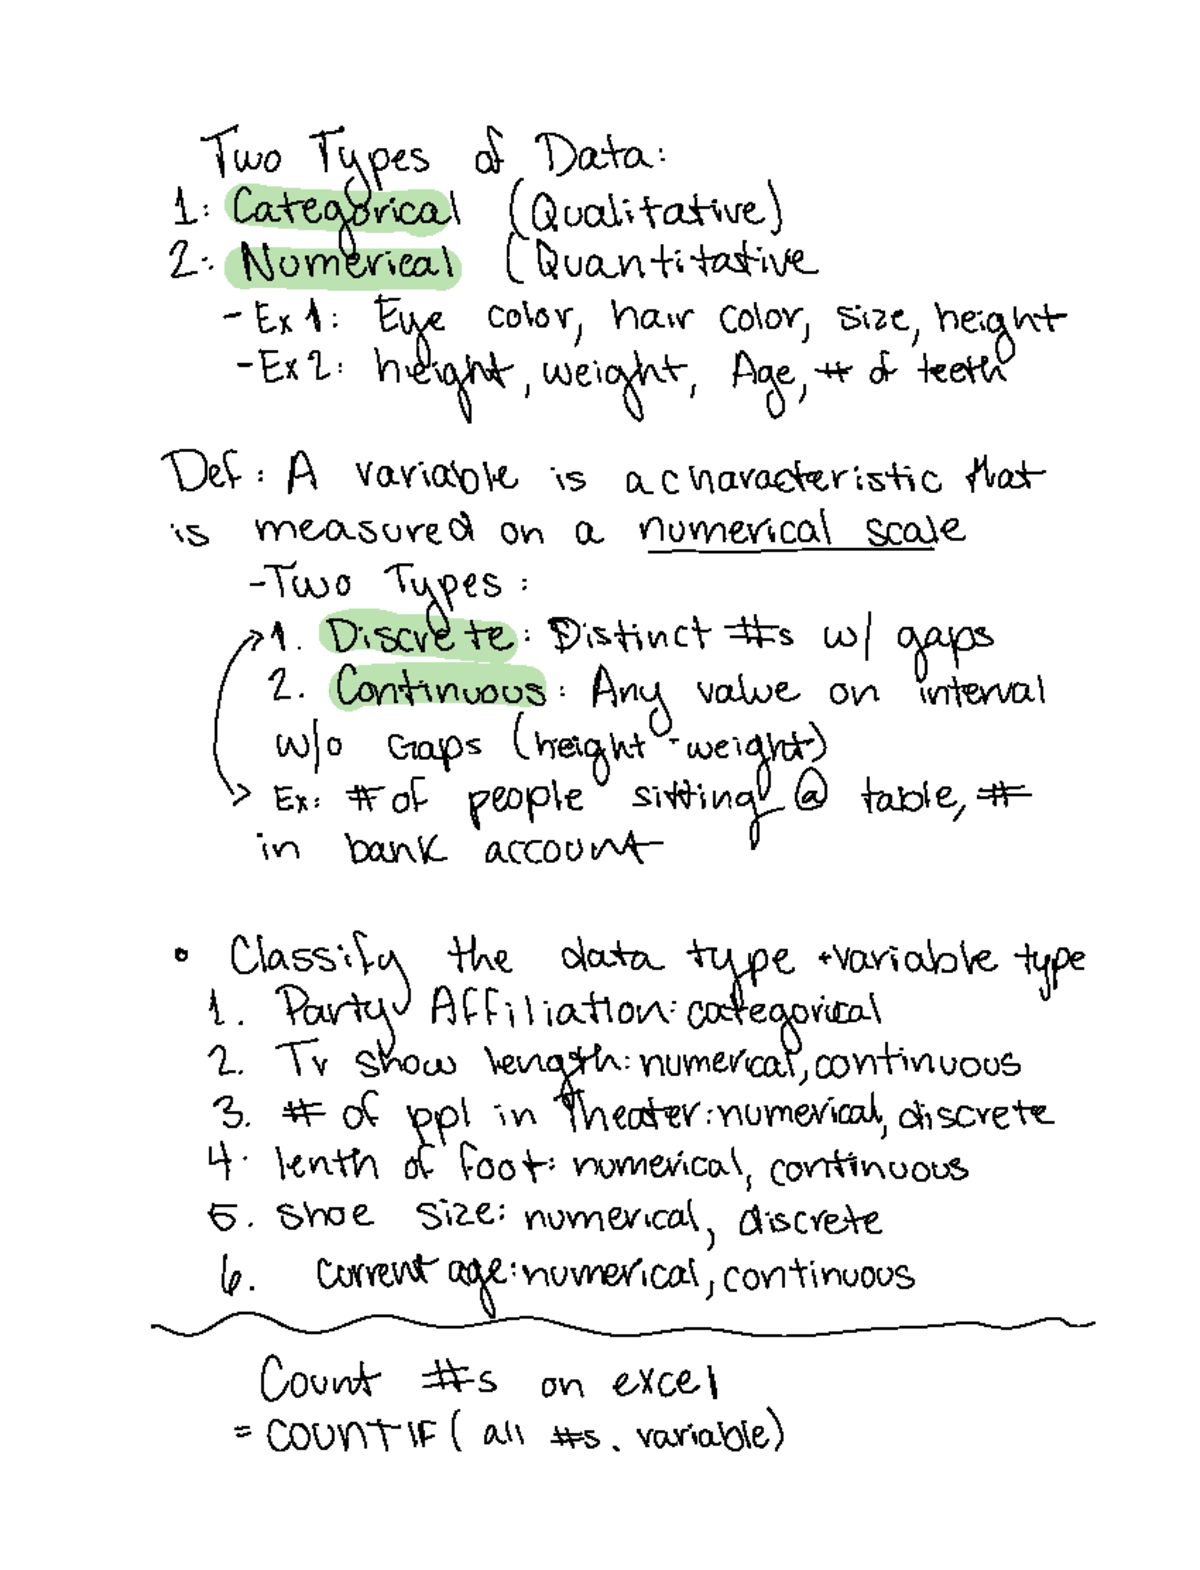 Two Types of Data:
1: Categorical (Qualitative)
2: Numerical (Quantitative
- Ex 1: Eye color, hair color, size, height
- Ex 2: height, weight, Age, # of teeth
Def: A variable is a characteristic that
is measured on a numerical scale
- Two Types:
1. Discrete: Distinct #s w/ gaps
2. Continuous: Any value on interval
w/o Gaps (height - weight)
Ex: # of people sitting @ table, #
in bank account
• Classify the data type + variable type
1. Party Affiliation: categorical
2. Tv show length: numerical, continuous
3. # of ppl in Theater: numerical, discrete
4. lenth of foot: numerical, continuous
5. shoe size: numerical, discrete
6. current age: numerical, continuous
Count #s on excel
= COUNTIF ( all #s. variable)